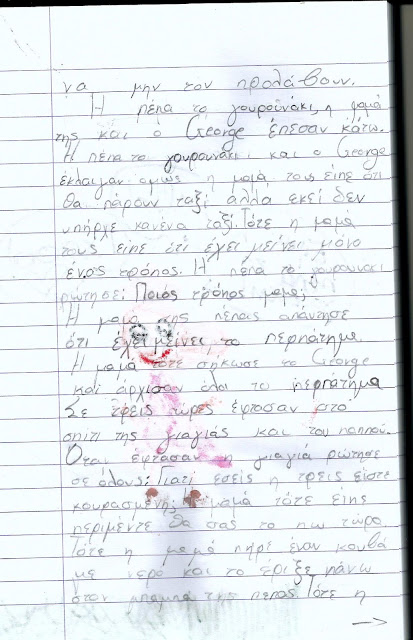 να μην τον προλάβουν.
Η πέπα το γουρουνάκι, η μαμά
της και ο George έπεσαν κάτω.
Η πέπα το γουρουνάκι και ο George
έκλαιγαν όμως η μαμά τους είπε ότι
θα πάρουν ταξί αλλά εκεί δεν
υπήρχε κανένα ταξί. Τότε η μαμά
τους είπε ότι έχει μείνει μόνο
ένας τρόπος. Η πέπα το γουρουνάκι
ρώτησε: Ποιός τρόπος μαμά;
Η μαμά της πέπας απάντησε
ότι έχει μείνει το περπάτημα
Η μαμά τότε σήκωσε το George
και άρχισαν όλοι το περπάτημα
Σε τρεις ώρες έφτασαν στο
σπίτι της γιαγιάς και του παππού.
Όταν έφτασαν η γιαγιά ρώτησε
σε όλους: Γιατί εσείς η τρεις είστε
κουρασμένη; Η μαμά τότε είπε
περιμέντε θα σας το πω τώρα
Τότε η μαμά πήρε έναν κουβά
με νερό και το έριξε πάνω
στον μπαμπά της πέπας. Τότε η
→